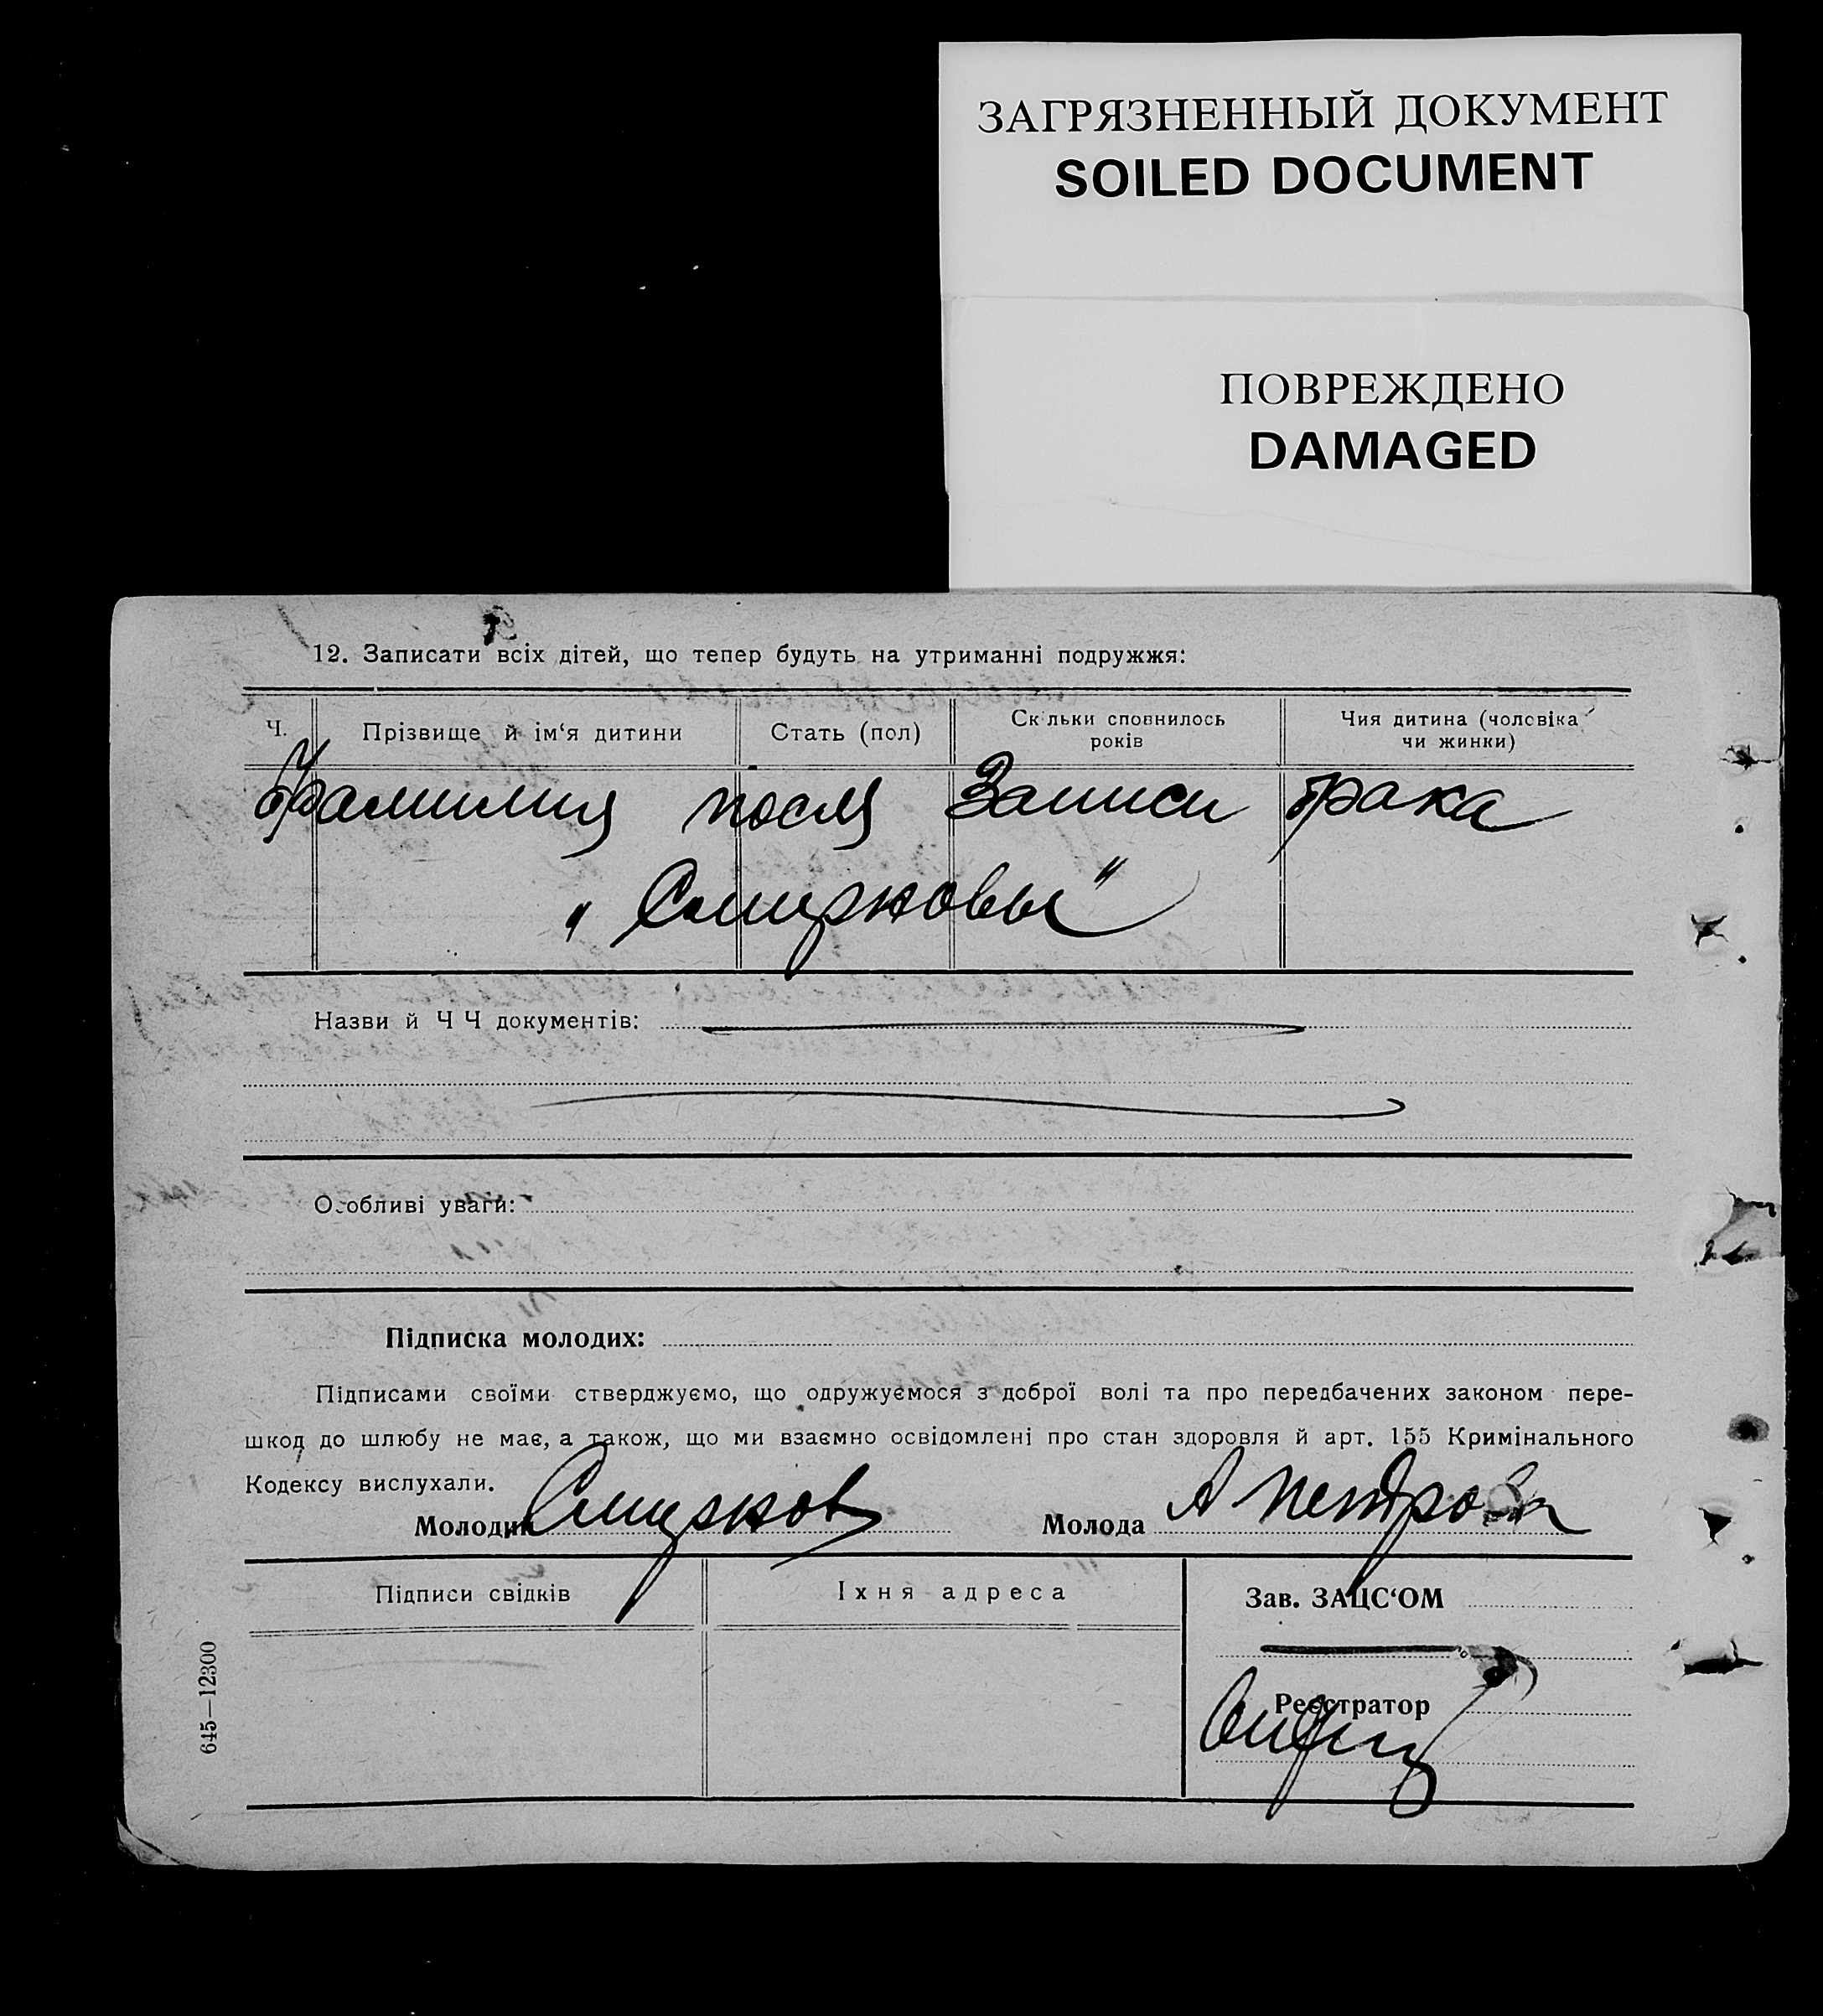 ЗАГРЯЗНЕННЫЙ ДОКУМЕНТ
SOILED DOCUMENT
ПОВРЕЖДЕНО
DAMAGED
12. Записати всіх дітей, що тепер будуть на утриманні подружжя:
Ч. Прізвище й ім‘я дитини Стать (пол) Скільки сповнилось років Чия дитина (чоловіка чи жинки)
Фамилия после Записи брака
„Смирновы"
Назви й Ч Ч документів:
Особливі уваги:
Підписка молодих:
Підписами своїми стверджуємо, що одружуємося з доброї волі та про передбачених законом пере-
шкод до шлюбу не має, а також, що ми взаємно освідомлені про стан здоровля й арт. 155 Кримінального
Кодексу вислухали.
Молодий Смирнов Молода А Петрова
Підписи свідків Їхня адреса Зав. ЗАЦС‘ОМ
Реєстратор
645—12300